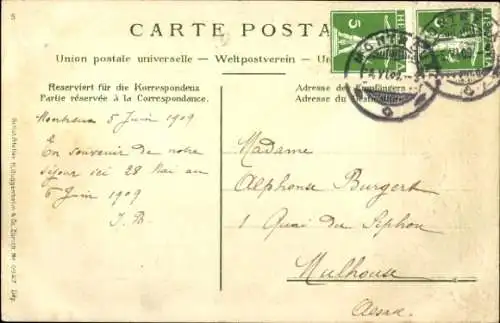 5
CARTE POSTA
Union postale universelle. — Weltpostverein. — Un
Reserviert für die Korrespondenz
Partie réservée à la Correspondance.
Adresse des Empfängers
Adresse du
HELVETIA
5
HELVETIA
MONTREUX
Montreux 5 Juin 1909
En souvenir de notre
séjour ici 28 Mai au
6 Juin 1909
J. B.
Madame
Alphonse Burgert
1 Quai du Siphon
Mulhouse
Alsace.
Guggenheim & Co. Zürich No.